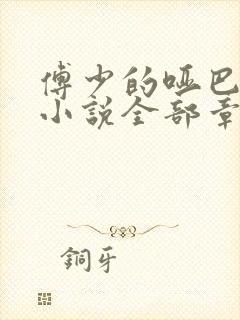 傅少的哑巴
小說全部章
銅牙